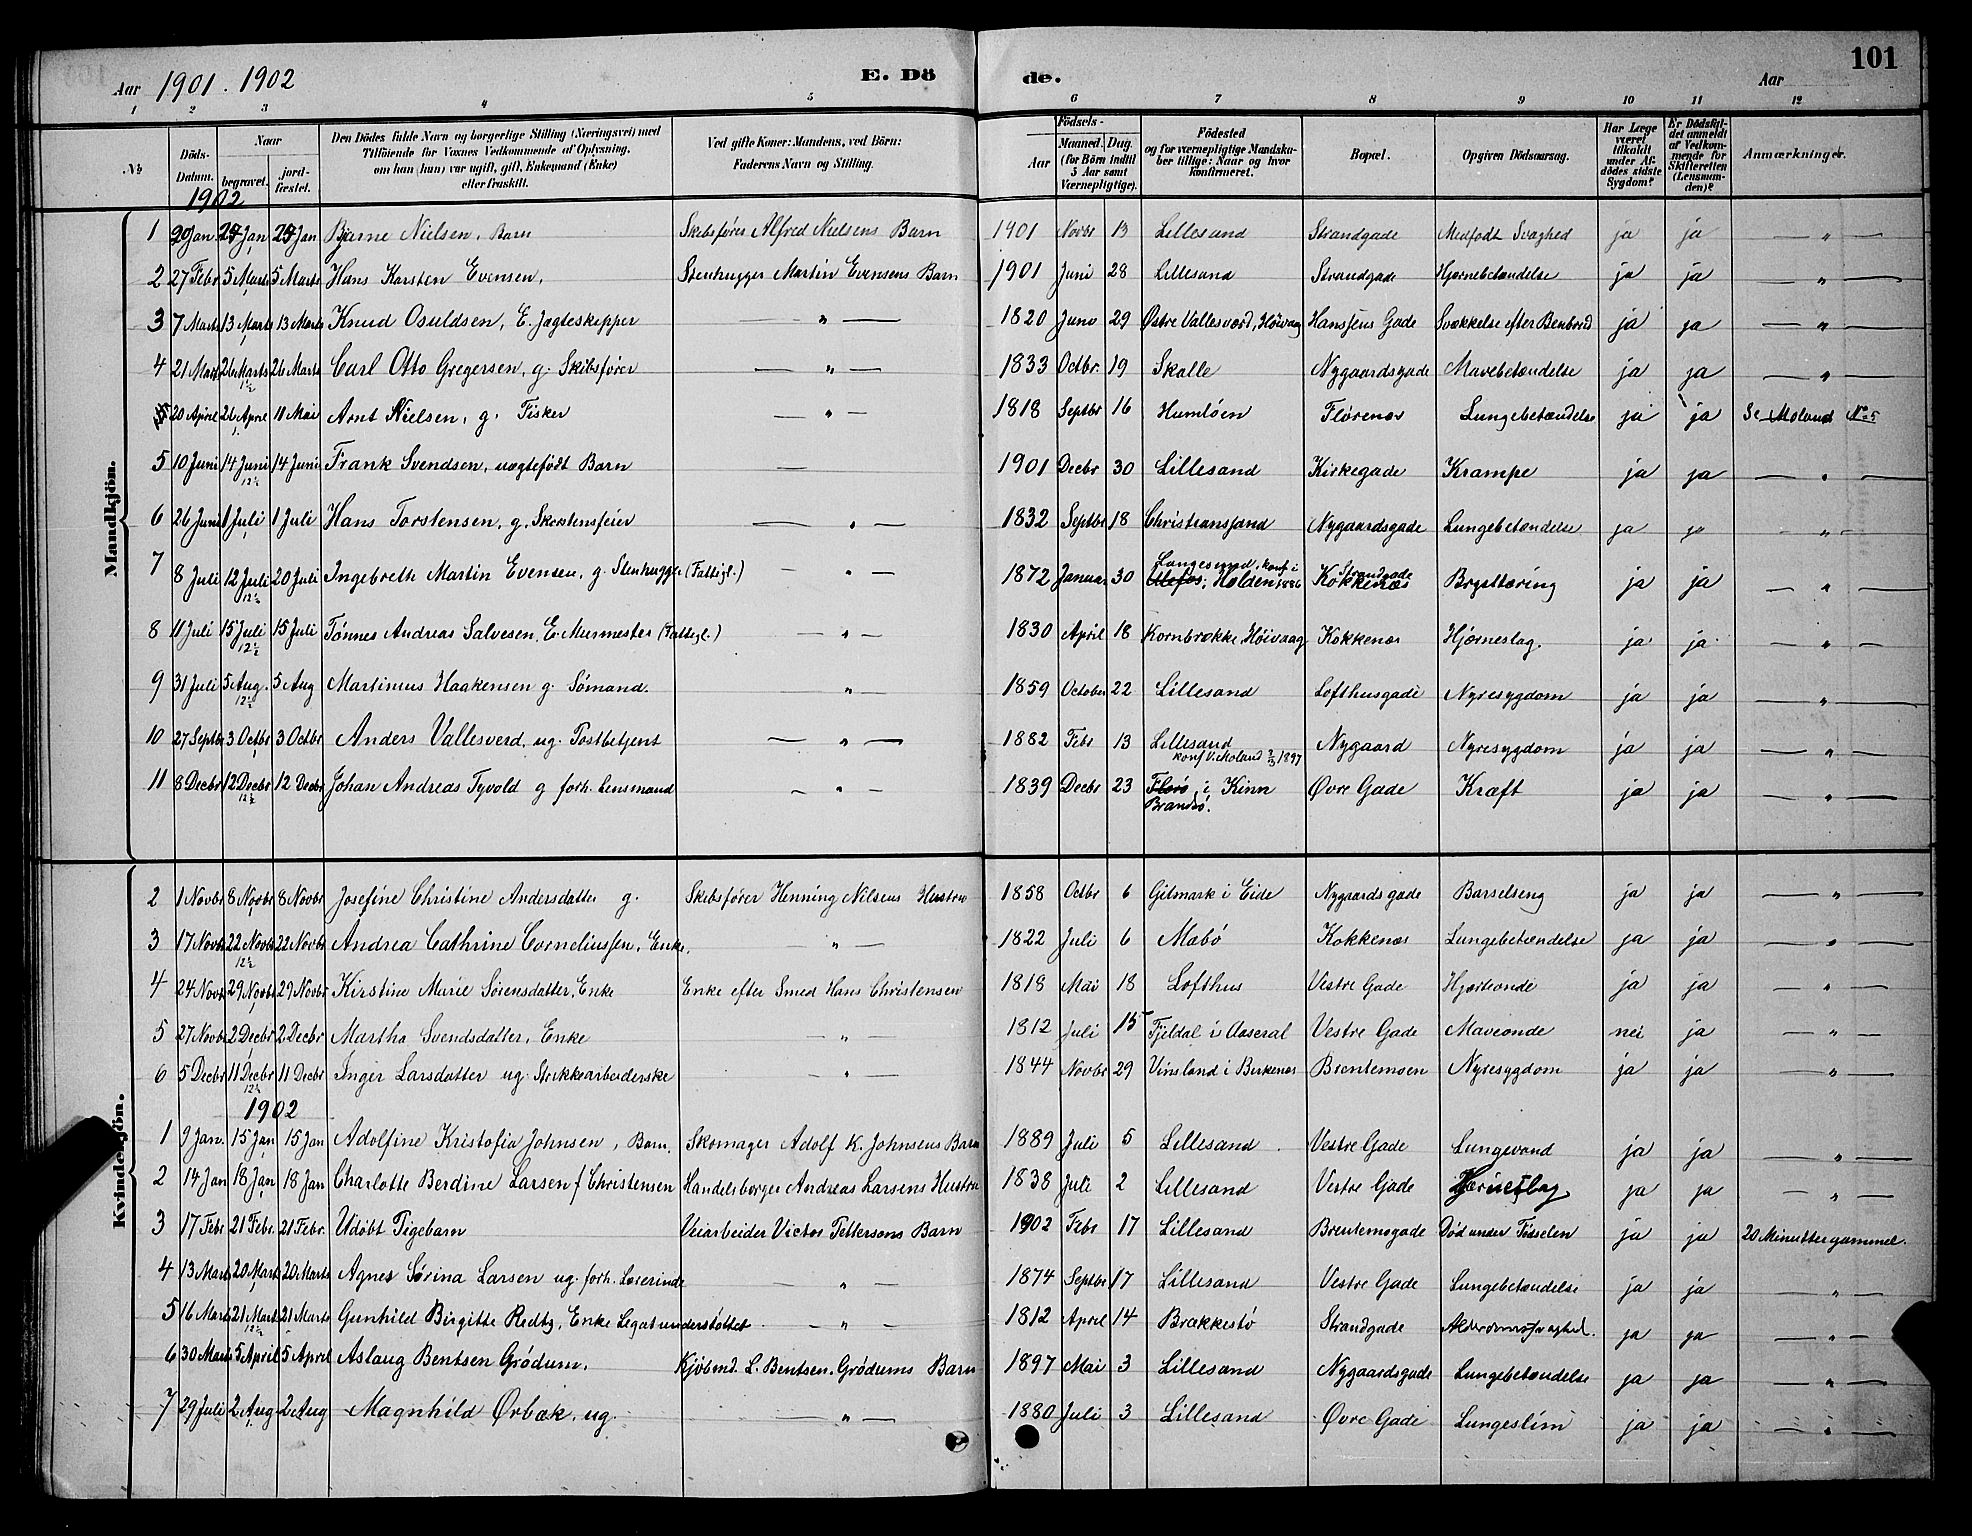 101
Aar 1901. 1902 E. Dö de. Aar
1 2 3 4 5 6 7 8 9 10 11 12
№ Döds-Datum. Naar begravet. jord-fæstet. Den Dödes fulde Navn og borgerlige Stilling (Næringsvei) med Tilföiende for Voxnes Vedkommende af Oplysning, om han (hun) var ugift, gift, Enkemand (Enke) eller fraskilt. Ved gifte Koner: Mandens, ved Börn: Faderens Navn og Stilling. Födsels- Aar Maaned. Dag. (for Börn indtil 5 Aar samt Værnepligtige). Födested og for værnepligtige Mandskaber tillige: Naar og hvor konfirmeret. Bopæl. Opgiven Dödsaarsag. Har Læge været tilkaldt under Afdödes sidste Sygdom? Er Dödsfaldet anmeldt af Vedkommende for Skifteretten (Lensmanden)? Anmærkninger.
1902
Mandkjön.
1 20 Jan. 24 Jan 24 Jan Bjarne Nielsen, Barn Skibsfører Alfred Nielsens Barn 1901 Novbr 13 Lillesand Strandgade Medfødt Svaghed ja ja — „ —
2 27 Febr 5 Marts 5 Marts Hans Karsten Evensen, Stenhugger Martin Evensens Barn 1901 Juni 28 Lillesand Strandgade Hjernebetændelse ja ja — „ —
3 7 Marts 13 Marts 13 Marts Knud Osuldsen, E. Jægteskipper — „ — 1820 Juni 29 Østre Vallesværd, Höivaag Hansens Gade Svækkelse efter Benbrud ja ja — „ —
4 21 Marts 26 Marts 1½ 26 Marts Carl Otto Gregersen, g. Skibsfører — „ — 1833 Octbr. 19 Skalle Nygaardsgade Mavebetændelse ja ja — „ —
20 April 26 April 11 Mai Arnt Nielsen, g. Fisker — „ — 1818 Septbr 16 Humlöen Florenæs Lungebetændelse ja ja Se Moland № 5
5 10 Juni 14 Juni 12½ 14 Juni Frank Svendsen, uægtefødt Barn — 1901 Decbr 30 Lillesand Kirkegade Krampe ja ja — „ —
6 26 Juni 1 Juli 1 Juli Hans Torstensen, g. Skorstensfeier — „ — 1832 Septbr 18 Christiansand Nygaardsgade Lungebetændelse ja ja — „ —
7 8 Juli 12 Juli 12½ 20 Juli Ingebreth Martin Evensen, g. Stenhugger (Fattigl.) — „ — 1872 Januar 30 Langesund, konf i Ulefos, Holden 1886 Strandgade Kokkenæs Brysttæring ja ja — „ —
8 11 Juli 15 Juli 12½ 15 Juli Tönnes Andreas Salvesen, E. Murmester (Fattigl.) — „ — 1830 April 18 Kornbrække Höivaag Kokkenæs Hjerneslag. ja ja — „ —
9 31 Juli 5 Aug. 12½ 5 Aug Martinius Haakensen g. Sömand. „ — 1859 October 22 Lillesand Lofthusgade Nyresygdom ja ja — „ —
10 27 Septbr 3 Octbr 3 Octbr Anders Vallesverd, ug. Postbetjent — „ — 1882 Febr 13 Lillesand konf V. Moland 1897 Nygaard Nyresygdom ja ja — „ —
11 8 Decbr 12 Decbr 12½ 12 Decbr Johan Andreas Tyvold g forh. Lensmand — „ — 1839 Decbr 23 Florö i Kinn Brandsö. Øvre Gade Kræft ja ja — „ —
Kvindekjön.
2 1 Novbr 8 Novbr 8 Novbr Josefine Christine Andersdatter g. Skibsfører Henning Nilsens Hustru 1858 Octbr 6 Gitmark i Eide Nygaards gade Barselseng ja ja — „ —
3 17 Novbr 22 Novbr 12½ 22 Novbr Andrea Cathrine Corneliussen, Enke. — „ — 1822 Juli 6 Mabö Kokkenæs Lungebetændelse ja ja — „ —
4 24 Novbr 29 Novbr 29 Novbr Kirstine Marie Sörensdatter, Enke Enke efter Smed Hans Christensen 1818 Mai 18 Lofthus Vestre Gade Hjerteonde ja ja — „ —
5 27 Novbr 2 Decbr 2 Decbr Martha Svendsdatter, Enke — „ — 1812 Juli 15 Fjeldal i Aaseral Vestre Gade Maveonde nei ja — „ —
6 5 Decbr 11 Decbr 12½ 11 Decbr Inger Larsdatter ug. Strikkearbeiderske — „ — 1844 Novbr 29 Vinsland i Birkenæs Brentemoen Nyresygdom ja ja — „ —
1902
1 9 Jan. 15 Jan 15 Jan Adolfine Kristofia Johnsen, Barn. Skomager Adolf K. Johnsens Barn 1889 Juli 5 Lillesand Vestre Gade Lungevand ja ja — „ —
2 14 Jan 18 Jan 18 Jan Charlotte Berdine Larsen f Christensen Handelsborger Andreas Larsens Hustru 1838 Juli 2 Lillesand Vestre Gade Hjerneslag ja ja — „ —
3 17 Febr 21 Febr. 21 Febr. Udöbt Pigebarn Veiarbeider Victor Pettersons Barn 1902 Febr 17 Lillesand Brentemogade Död under Födselen ja ja 20 Minutter gammel.
4 13 Marts 20 Marts 20 Marts Agnes Sörina Larsen ug. forh. Lærerinde — „ — 1874 Septbr 17 Lillesand Vestre Gade Lungebetændelse ja ja — „ —
5 16 Marts 21 Marts 12½ 21 Marts Gunhild Birgitte Redtz, Enke Legatunderstöttet — „ — 1812 April 14 Brækkestö Strandgade Alderdomssvaghed. ja ja — „ —
6 30 Marts 5 April 5 April Aslaug Bentsen Grödum, Kjöbmd. L. Bentsen Grödums Barn 1897 Mai 3 Lillesand Nygaardsgade Lungebetændelse ja ja — „ —
7 29 Juli 2 Aug 2 Aug Magnhild Ørbæk, ug. — „ — 1880 Juli 3 Lillesand Øvre Gade Lungeslim ja ja — „ —